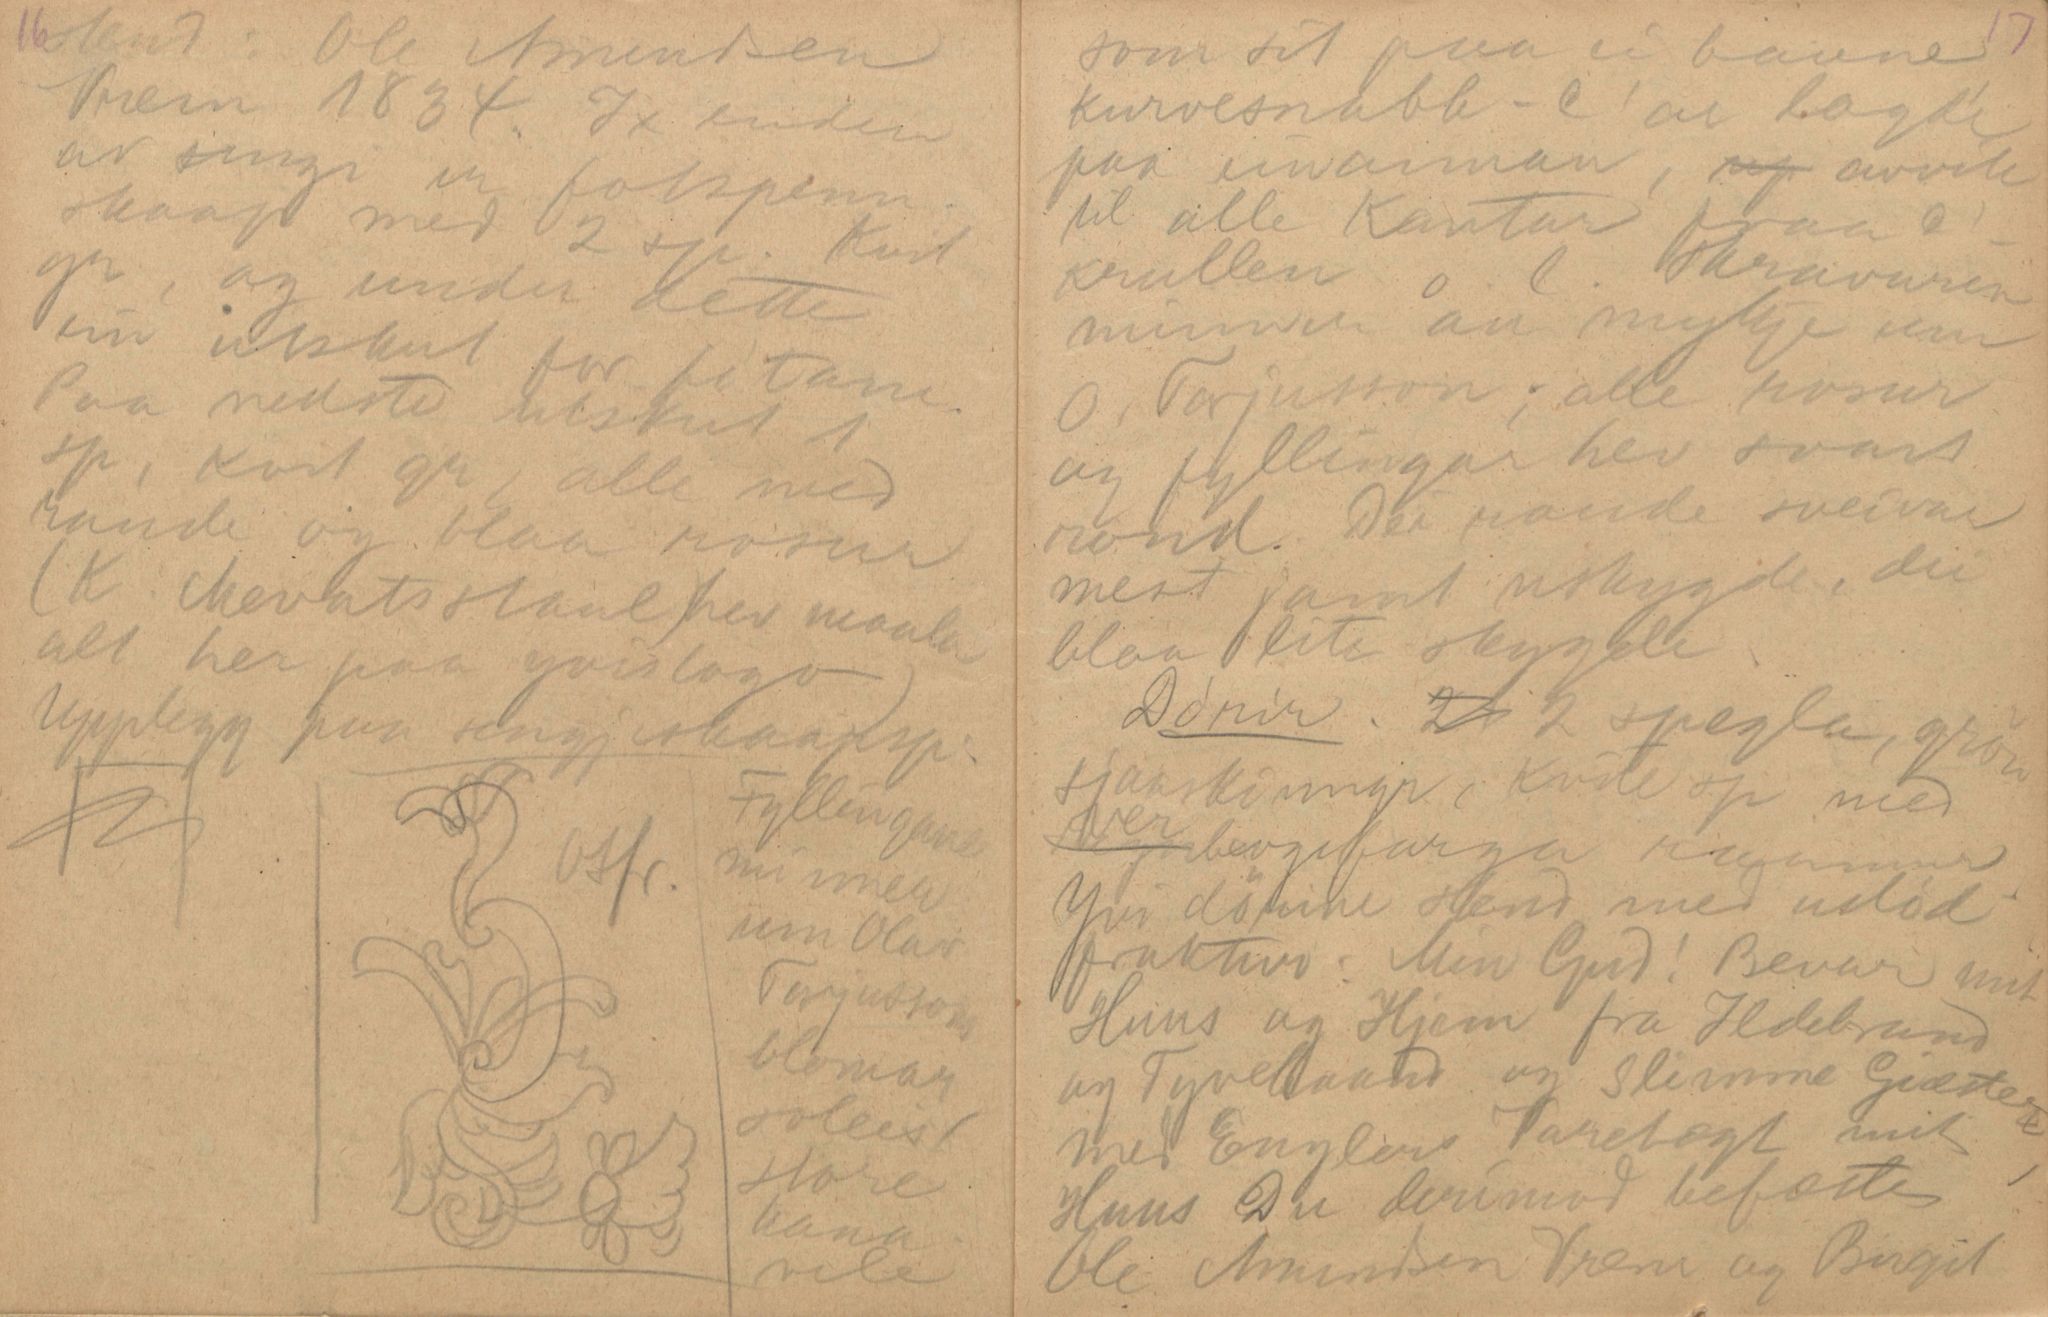 16
stend: Ole Amundsen
Vrem 1834. I enden
av sengi er fotspenn-
skaap med 2 sp. Kvit
gr, og under dette
ein utskut for fotane.
Paa nedste utskut 1
sp, kvit gr, alle med
raude og blaa rosur
(K. Mevatsstaul) hev maala
alt her paa yvislago)
Upplegg paa sengjeskaapsp:
Osfr.
Fyllingane
minner
um Olav
Torjussons
blomar
soleis
store
kana-
vele
17
som sit paa ei bavne
kurvesnabb - C' ar lagde
paa einannan, avvik
til alle Kantar fraa C'-
krullen o. l. Skravuren
minner au mykje um
O. Torjusson; alle rosur
og fyllingar hev svart
rond. Dei raude sveivar
mest jamt uskygde, dei
blaa lite skygde.
Dönir. 2 spegla, grön
sjaaskinngr, kvite sp med
raamur
Yvi dörine stend med
fraktur: Min Gud! Bevar mit
Huus og Hjem fra Ildebrand
og Tyvehaand og slemme Giæster,
med Englers Varetægt mit
Huus Du derimod befæste
Ole Amundsen Vrem og Birgit